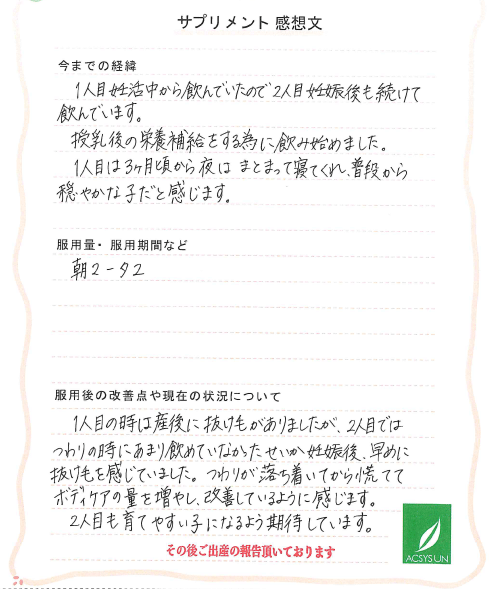 サプリメント 感想文
今までの経緯
1人目妊活中から飲んでいたので2人目妊娠後も続けて
飲んでいます。
授乳後の栄養補給をする為に飲み始めました。
1人目は3ヶ月頃から夜は まとまって寝てくれ、普段から
穏やかな子だと感じます。
服用量・服用期間など
朝2-夕2
服用後の改善点や現在の状況について
1人目の時は産後に抜け毛がありましたが、2人目では
つわりの時にあまり飲めていなかったせいか妊娠後、早めに
抜け毛を感じていました。つわりが落ち着いてから慌てて
ボディケアの量を増やし、改善しているように感じます。
2人目も育てやすい子になるよう期待しています。
その後ご出産の報告頂いております
ACSYSUN